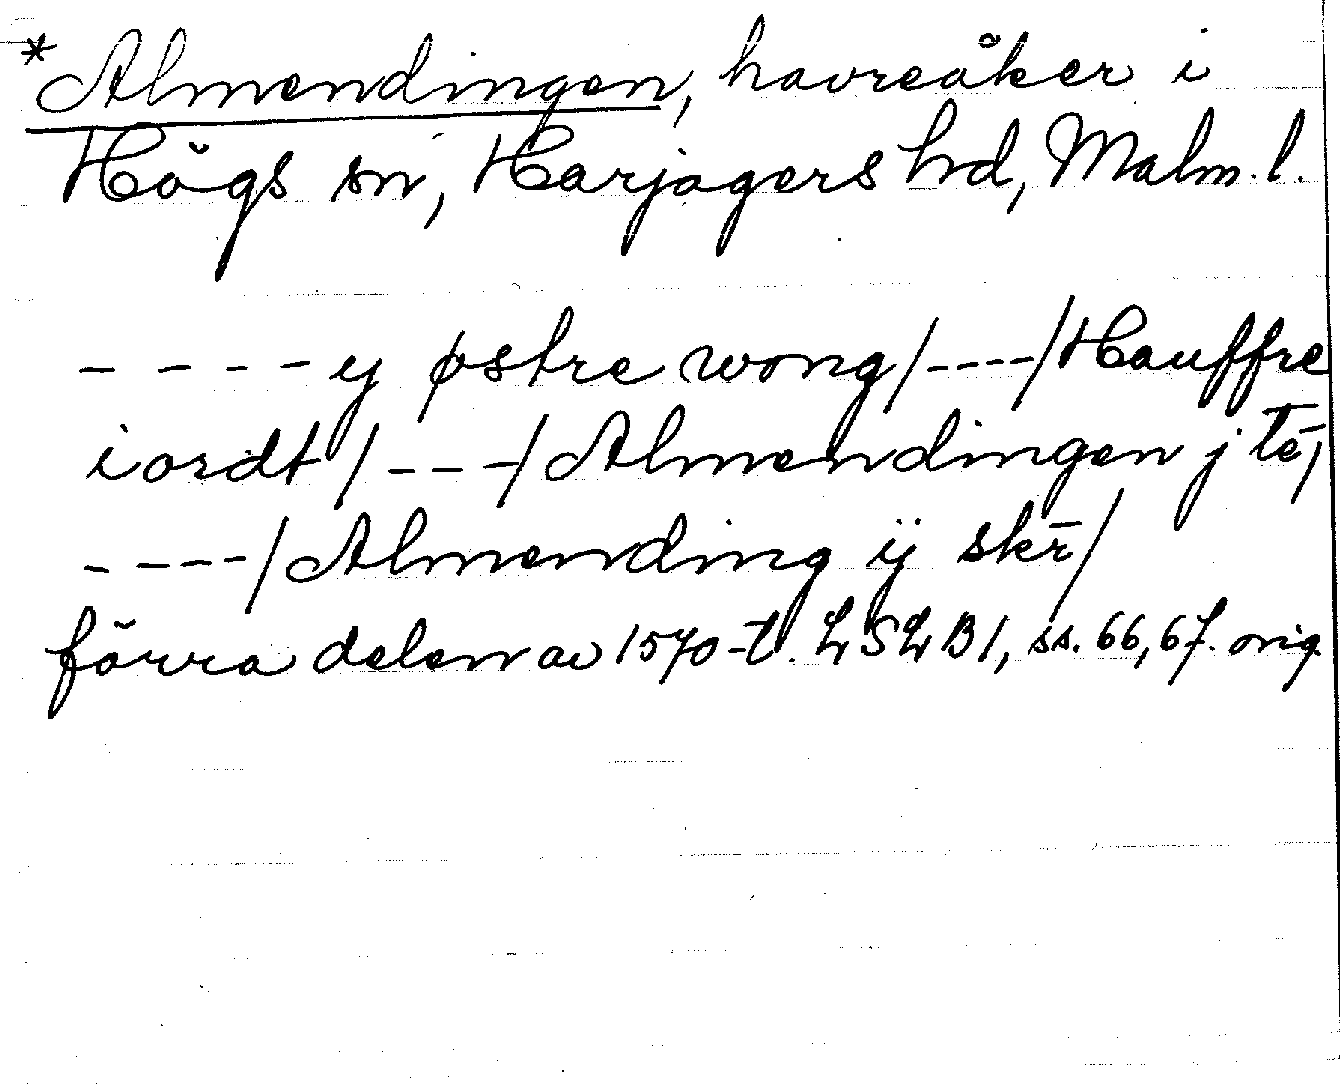 *Almendingen, havreåker i
Högs sn, Harjagers hd, Malm. l.
- - - - y østre wong/----/Hauffre
iordt/---/Almendingen j te/
----/Almending ij skr̄/
förra delen av 1570-t. LSL B1, ss. 66, 67. orig.